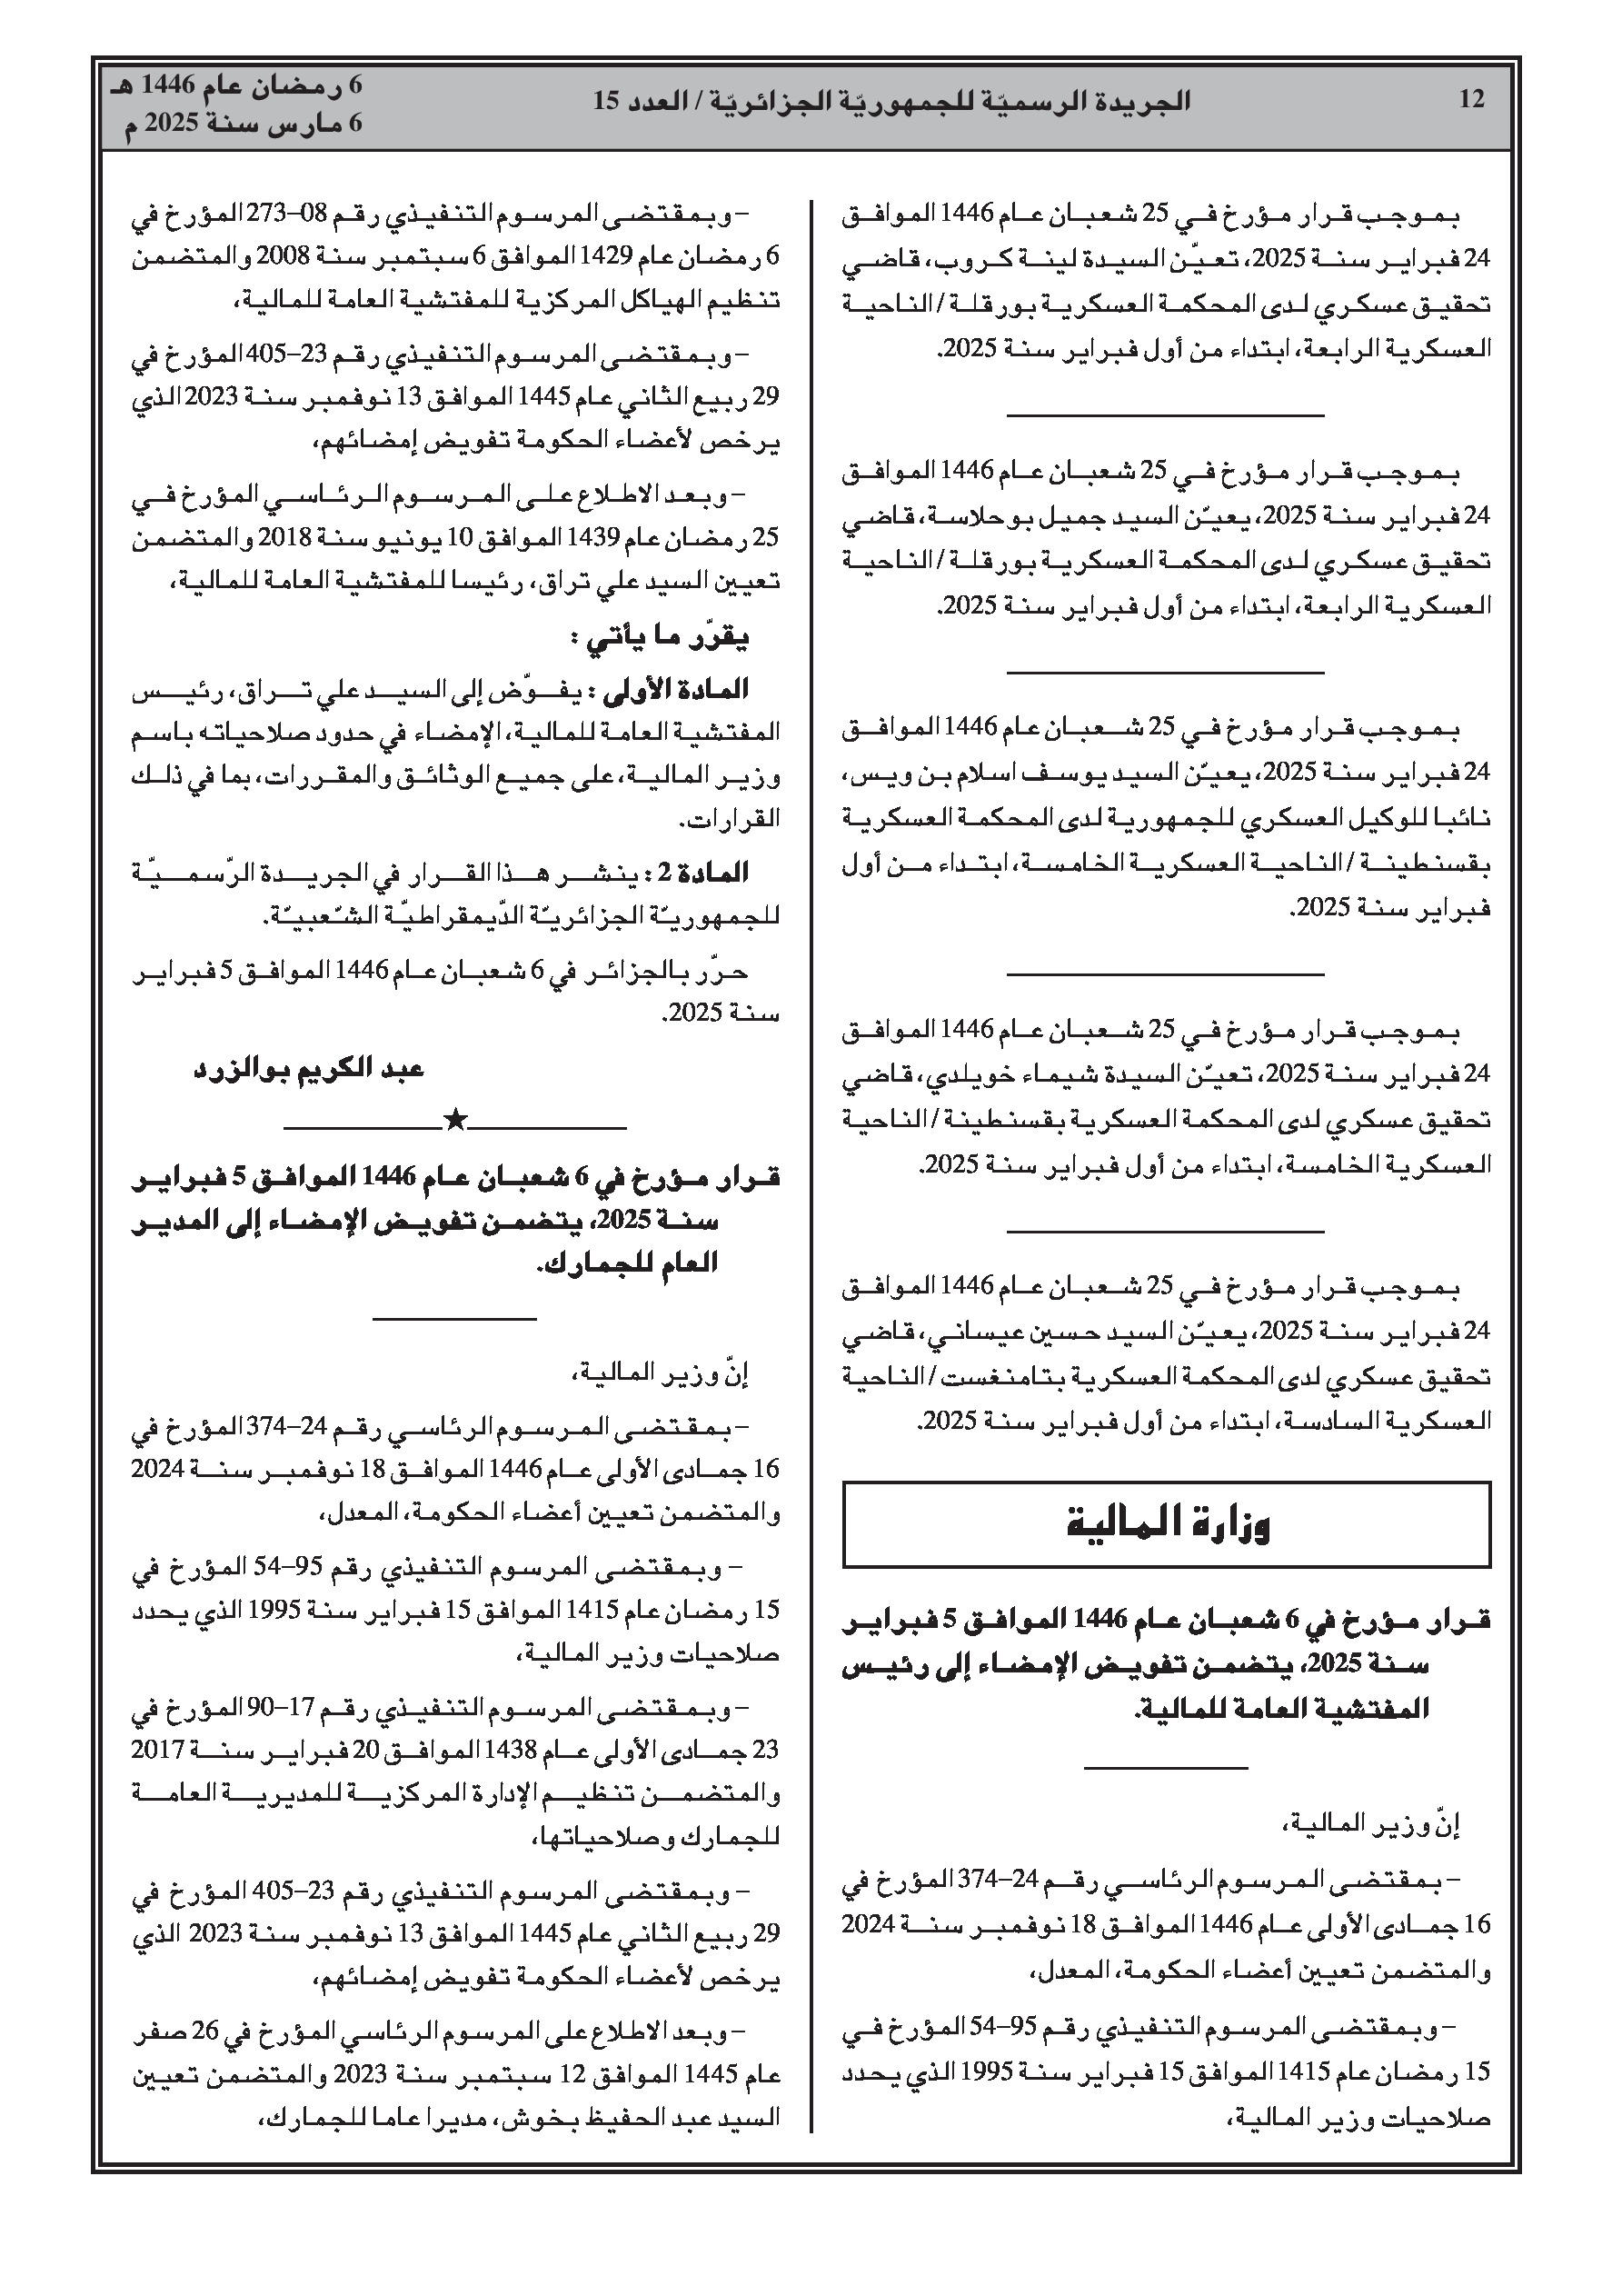 12
الجريدة الرسميّة للجمهوريّة الجزائريّة / العدد 15
6 رمضان عام 1446 هـ
6 مارس سنة 2025 م
بموجب قرار مؤرخ في 25 شعبان عام 1446 الموافق
24 فبراير سنة 2025، تعيّن السيدة لينة كروب، قاضي
تحقيق عسكري لدى المحكمة العسكرية بورقلة / الناحية
العسكرية الرابعة، ابتداء من أول فبراير سنة 2025.
بموجب قرار مؤرخ في 25 شعبان عام 1446 الموافق
24 فبراير سنة 2025، يعيّن السيد جميل بوحلاسة، قاضي
تحقيق عسكري لدى المحكمة العسكرية بورقلة / الناحية
العسكرية الرابعة، ابتداء من أول فبراير سنة 2025.
بموجب قرار مؤرخ في 25 شعبان عام 1446 الموافق
24 فبراير سنة 2025، يعيّن السيد يوسف اسلام بن ويس،
نائبا للوكيل العسكري للجمهورية لدى المحكمة العسكرية
بقسنطينة / الناحية العسكرية الخامسة، ابتداء من أول
فبراير سنة 2025.
بموجب قرار مؤرخ في 25 شعبان عام 1446 الموافق
24 فبراير سنة 2025، تعيّن السيدة شيماء خويلدي، قاضي
تحقيق عسكري لدى المحكمة العسكرية بقسنطينة / الناحية
العسكرية الخامسة، ابتداء من أول فبراير سنة 2025.
بموجب قرار مؤرخ في 25 شعبان عام 1446 الموافق
24 فبراير سنة 2025، يعيّن السيد حسين عيساني، قاضي
تحقيق عسكري لدى المحكمة العسكرية بتامنغست / الناحية
العسكرية السادسة، ابتداء من أول فبراير سنة 2025.
وزارة المالية
قرار مؤرخ في 6 شعبان عام 1446 الموافق 5 فبراير
سنة 2025، يتضمن تفويض الإمضاء إلى رئيس
المفتشية العامة للمالية.
إنّ وزير المالية،
– بمقتضى المرسوم الرئاسي رقم 24–374 المؤرخ في
16 جمادى الأولى عام 1446 الموافق 18 نوفمبر سنة 2024
والمتضمن تعيين أعضاء الحكومة، المعدل،
– وبمقتضى المرسوم التنفيذي رقم 95–54 المؤرخ في
15 رمضان عام 1415 الموافق 15 فبراير سنة 1995 الذي يحدد
صلاحيات وزير المالية،
– وبمقتضى المرسوم التنفيذي رقم 08–273 المؤرخ في
6 رمضان عام 1429 الموافق 6 سبتمبر سنة 2008 والمتضمن
تنظيم الهياكل المركزية للمفتشية العامة للمالية،
– وبمقتضى المرسوم التنفيذي رقم 23–405 المؤرخ في
29 ربيع الثاني عام 1445 الموافق 13 نوفمبر سنة 2023 الذي
يرخص لأعضاء الحكومة تفويض إمضائهم،
– وبعد الاطلاع على المرسوم الرئاسي المؤرخ في
25 رمضان عام 1439 الموافق 10 يونيو سنة 2018 والمتضمن
تعيين السيد علي تراق، رئيسا للمفتشية العامة للمالية،
يقرّر ما يأتي :
المادة الأولى : يفوّض إلى السيد علي تراق، رئيس
المفتشية العامة للمالية، الإمضاء في حدود صلاحياته باسم
وزير المالية، على جميع الوثائق والمقررات، بما في ذلك
القرارات.
المادة 2 : ينشر هذا القرار في الجريدة الرّسميّة
للجمهوريّة الجزائريّة الدّيمقراطيّة الشّعبيّة.
حرّر بالجزائر في 6 شعبان عام 1446 الموافق 5 فبراير
سنة 2025.
عبد الكريم بوالزرد
قرار مؤرخ في 6 شعبان عام 1446 الموافق 5 فبراير
سنة 2025، يتضمن تفويض الإمضاء إلى المدير
العام للجمارك.
إنّ وزير المالية،
– بمقتضى المرسوم الرئاسي رقم 24–374 المؤرخ في
16 جمادى الأولى عام 1446 الموافق 18 نوفمبر سنة 2024
والمتضمن تعيين أعضاء الحكومة، المعدل،
– وبمقتضى المرسوم التنفيذي رقم 95–54 المؤرخ في
15 رمضان عام 1415 الموافق 15 فبراير سنة 1995 الذي يحدد
صلاحيات وزير المالية،
– وبمقتضى المرسوم التنفيذي رقم 17–90 المؤرخ في
23 جمادى الأولى عام 1438 الموافق 20 فبراير سنة 2017
والمتضمن تنظيم الإدارة المركزية للمديرية العامة
للجمارك وصلاحياتها،
– وبمقتضى المرسوم التنفيذي رقم 23–405 المؤرخ في
29 ربيع الثاني عام 1445 الموافق 13 نوفمبر سنة 2023 الذي
يرخص لأعضاء الحكومة تفويض إمضائهم،
– وبعد الاطلاع على المرسوم الرئاسي المؤرخ في 26 صفر
عام 1445 الموافق 12 سبتمبر سنة 2023 والمتضمن تعيين
السيد عبد الحفيظ بخوش، مديرا عاما للجمارك،